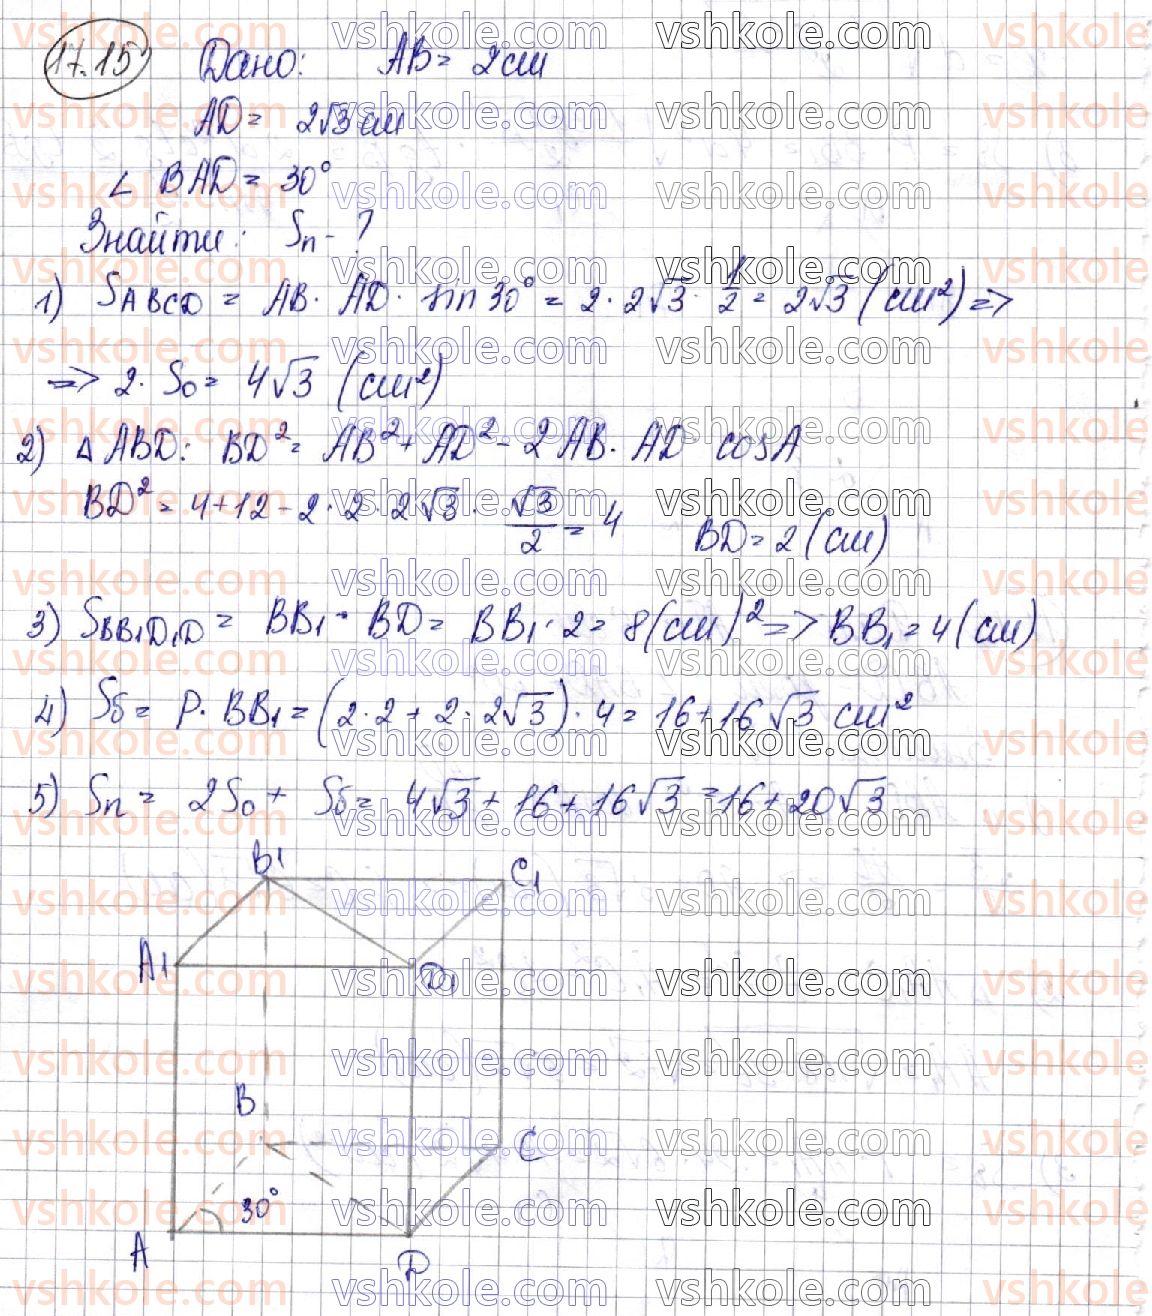 17.15 Дано: AB = 2 см
AD = 2√3 см
∠ BAD = 30°
Знайти: Sп - ?
1) SABCD = AB · AD · sin 30° = 2 · 2√3 · 1/2 = 2√3 (см²) =>
=> 2 · So = 4√3 (см²)
2) Δ ABD: BD² = AB² + AD² - 2 AB · AD · cos A
BD² = 4 + 12 - 2 · 2 · 2√3 · √3/2 = 4 BD = 2 (см)
3) SBB₁D₁D = BB₁ · BD = BB₁ · 2 = 8 (см)² => BB₁ = 4 (см)
4) Sб = P · BB₁ = (2 · 2 + 2 · 2√3) · 4 = 16 + 16√3 см²
5) Sп = 2So + Sб = 4√3 + 16 + 16√3 = 16 + 20√3
B₁ C₁
A₁ D₁
B
C
30°
A D
vshkole.com